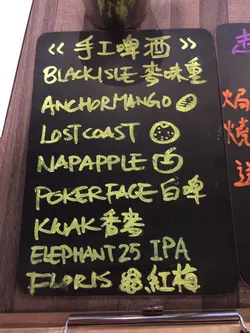 《 手工啤酒 》
BLACK ISLE 麥味重
ANCHOR MANGO
LOST COAST
NAPAPPLE
POKERFACE 白啤
KWAK 香麥
ELEPHANT 25 IPA
FLORIS 紅梅
焗
燒